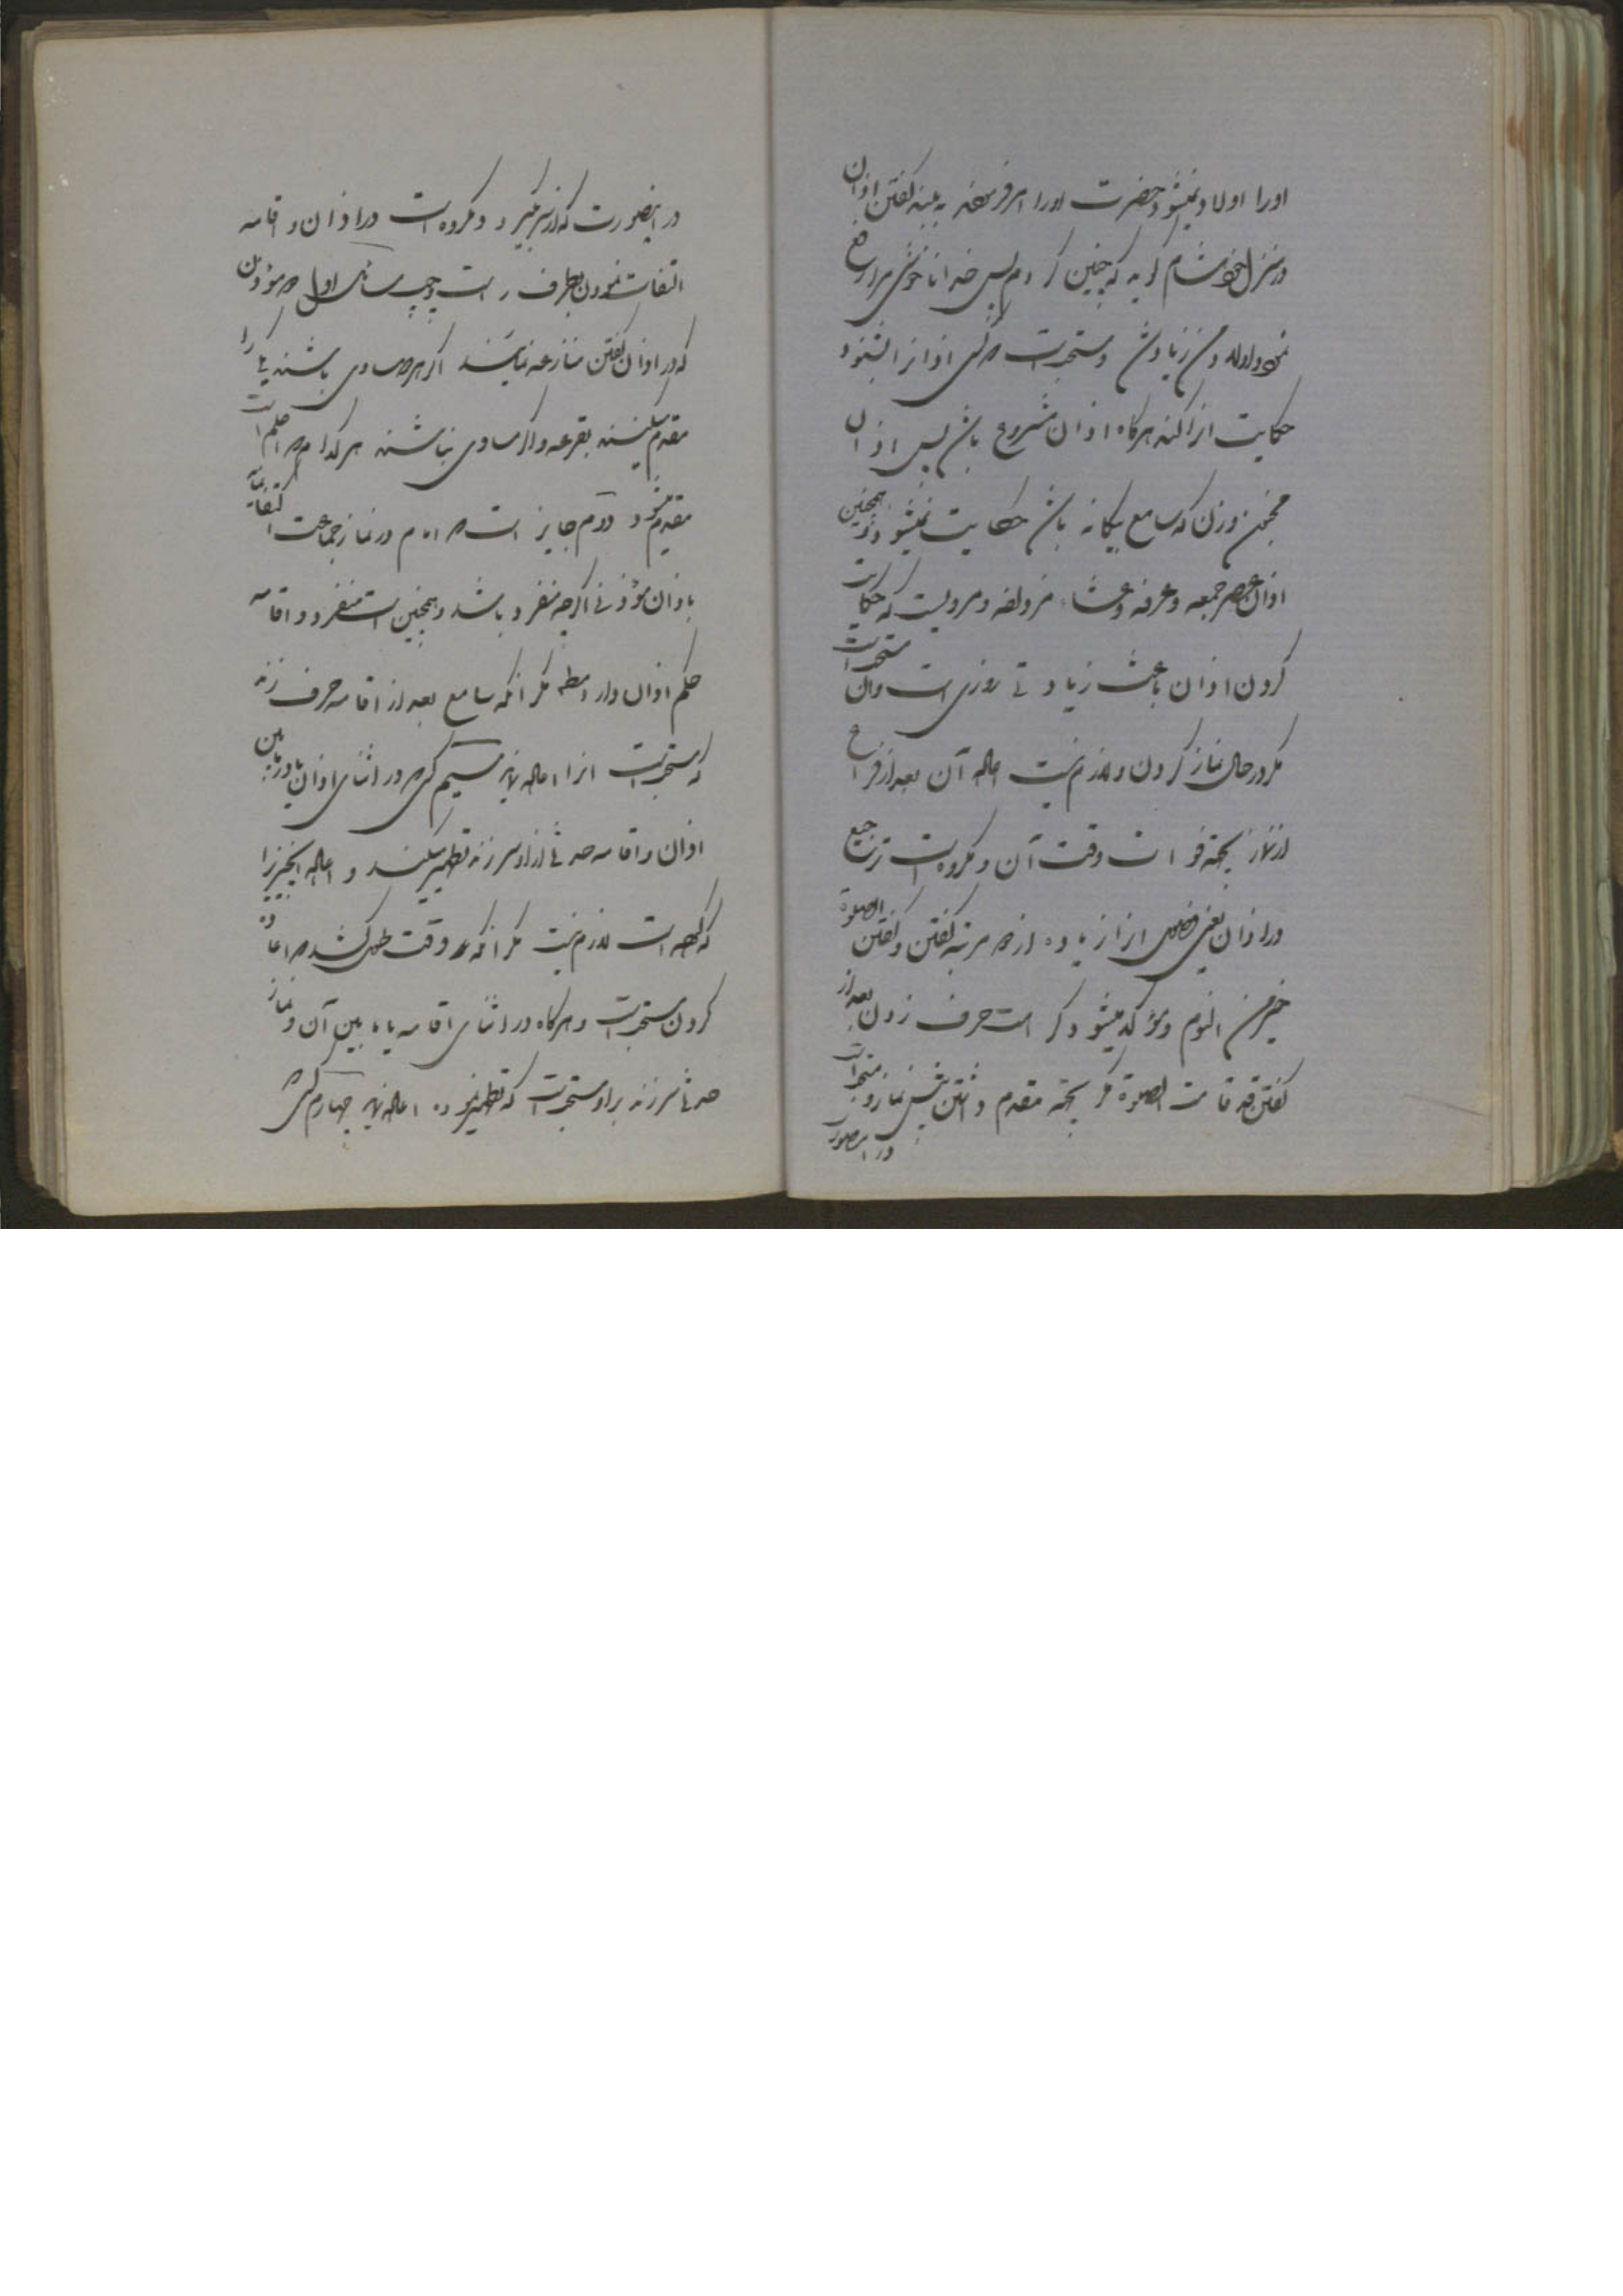 اورا اولاد نمیشود حضرت اورا امر فرمودند به بلند گفتن اذان
در منزل خود هشام گوید که چنین کردم پس خدا ناخوشی مرا رفع
نمود و اولاد من زیاد شد و مستحب است هر کس اذان را بشنود
حکایت انرا کند هرگاه اذان مشروع باشد پس اذان
مجنون و زن که سامع بیگانه باشد حکایت نمیشود و همچنین
اذان عصر جمعه و عرفه و عشاء مزدلفه و مرویست که حکایت
کردن اذان باعث زیادتی روزی است و ان مستحب است
مگر در حال نماز کردن و لازم نیست اعاده آن بعد از فراغ
از نماز بجهة فوات وقت آن و مکروه است ترجیع
در اذان یعنی فصول انرا زیاده از دو مرتبه گفتن و گفتن الصلوة
خیر من النوم و مؤکد میشود کراهت حرف زدن بعد از
گفتن قد قامت الصلوة مگر بجهة مقدم داشتن پیش نماز و مستحب است
در اینصورت
در اینصورت که از سر گیرد و مکروه است در اذان و اقامه
التفات نمودن بطرف راست و چپ مسائل اول دو مؤذن
که در اذان گفتن منازعه نمایند اگر هر دو مساوی باشند یکی را
مقدم میکنند بقرعه و اگر مساوی نباشند هر کدام که اعلم است
مقدم میشود دوم جایز است که امام در نماز جماعت اکتفا نماید
باذان مؤذنی اگرچه منفرد باشد و همچنین است منفرد و اقامه
حکم اذان دارد مگر آنکه سامع بعد از اقامه حرف زند
که مستحب است انرا اعاده نماید سیم کسی که در اثنای اذان یا در مابین
اذان و اقامه حدثی از او سر زند تطهیر میکند و اعاده انچیزیرا
که گفته است لازم نیست مگر آنکه وقت طول کشد که اعاده
کردن مستحب است و هرگاه در اثنای اقامه یا مابین آن و نماز
حدثی سر زند بر او مستحب است که تطهیر نموده اعاده نماید چهارم کسی که